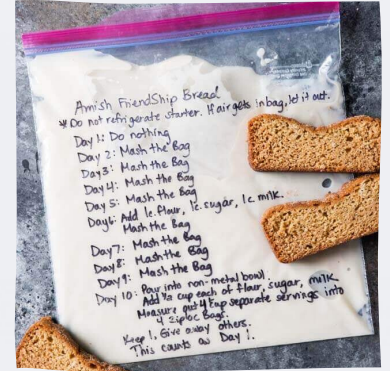 Amish FriendShip Bread
* Do not refrigerate starter. If air gets in bag, let it out.
Day 1: Do nothing
Day 2: Mash the Bag
Day 3: Mash the Bag
Day 4: Mash the Bag
Day 5: Mash the Bag
Day 6: Add 1c. flour, 1c. sugar, 1c. milk.
Mash the Bag
Day 7: Mash the Bag
Day 8: Mash the Bag
Day 9: Mash the Bag
Day 10: Pour into non-metal bowl.
Add cup each of flour, sugar, milk
Measure out 4 1 cup separate servings into
4 Ziploc Bags.
Keep 1. Give away others.
This counts as Day 1.